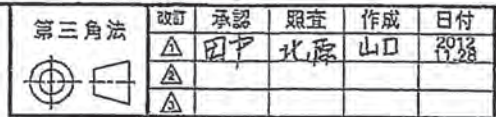 第三角法
改訂 承認 照査 作成 日付
1 田中 北原 山口 2012 11.28
2
3